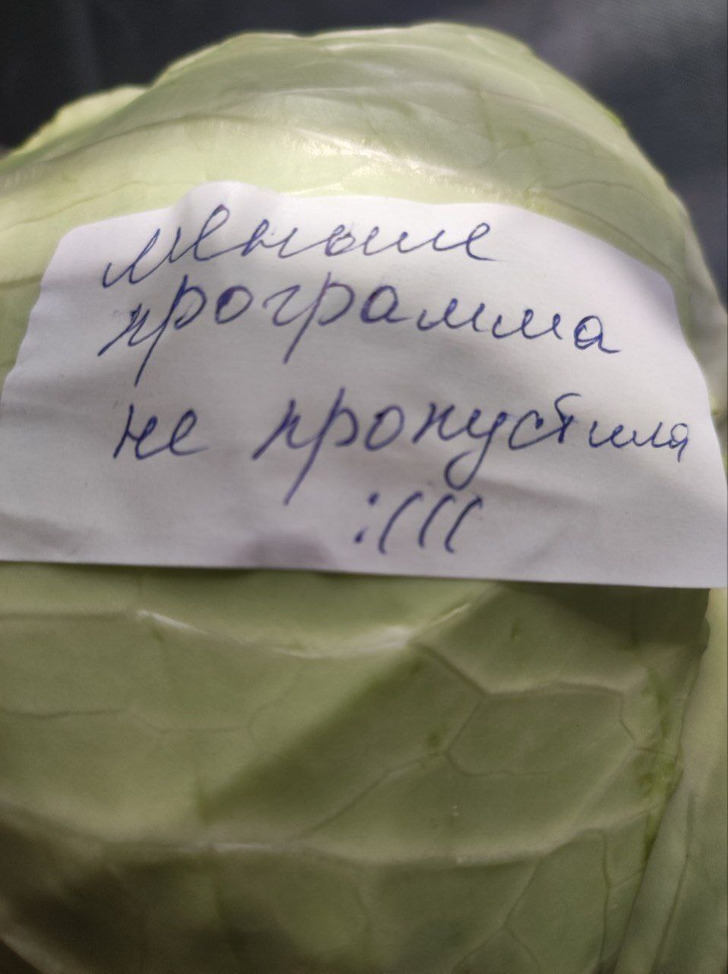 меньше
программа
не пропустила
:(((